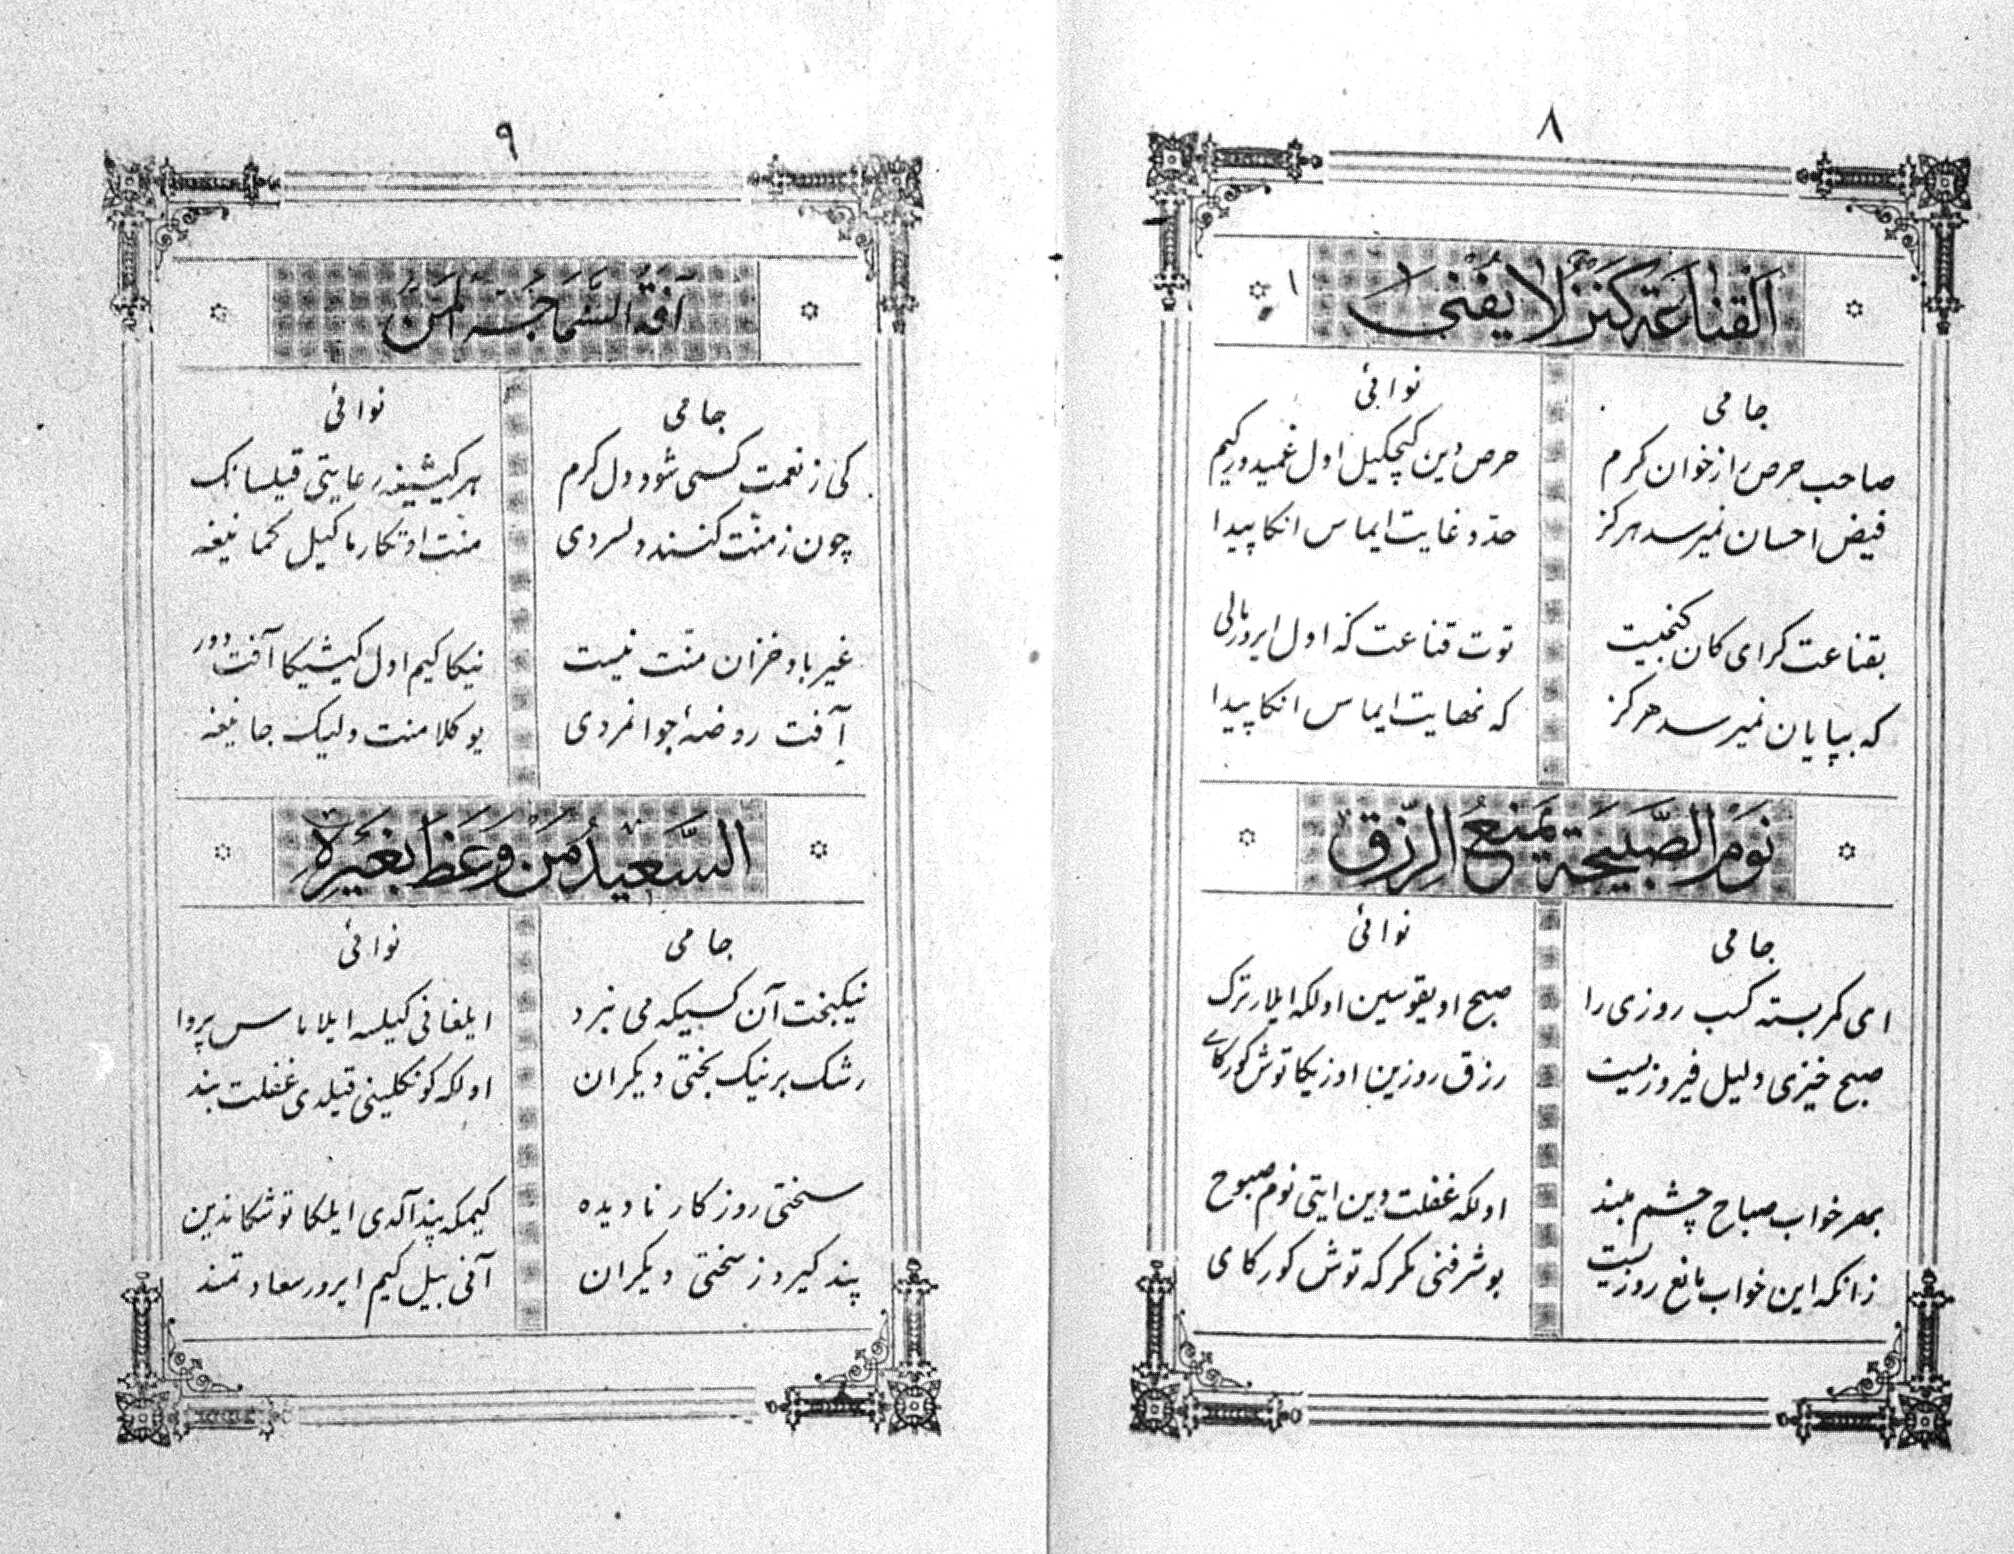 ٨
اَلْقَنَاعَةُ كَنْزٌ لَا يَفْنَى
جامی
صاحب حرص را ز خوان کرم
فیض احسان نمیرسد هرکز
بقناعت کرای کان کنجیست
که بپایان نمیرسد هرکز
نوائی
حرص دین کیچکیل اول غمیدور کیم
حد و غایت ایماس انکا پیدا
توت قناعت که اول ایرور مالی
که نهایت ایماس انکا پیدا
نَوْمُ الصُّبْحَةِ يَمْنَعُ الرِّزْقَ
جامی
ای کمر بسته کسب روزی را
صبح خیزی دلیل فیروزیست
بهر خواب صباح چشم مبند
زانکه این خواب مانع روزیست
نوائی
صبح اویقوسین اولکه ایلار ترک
رزق روزین اوزیکا توش کورکای
اولکه غفلت دین ایتی نوم صبوح
بو شرفنی مکر که توش کورکای
٩
آفَةُ السَّمَاحَةِ الْمَنُّ
جامی
کی ز نعمت کسی شود دل کرم
چون ز منّت کنند دلسردی
غیر باد خزان منّت نیست
آفت روضهٔ جوانمردی
نوائی
هر کیشیغه رعایتی قیلسانک
منت اوتکارماکیل کمانیغه
نیکا کیم اول کیشیکا آفت دور
یوکلامنت ولیک جانیغه
السَّعِيدُ مَنْ وُعِظَ بِغَيْرِهِ
جامی
نیکبخت آن کسیکه می نبرد
رشک بر نیک بختی دیکران
سختی روزکار نادیده
پند کیرد ز سختی دیکران
نوائی
ایلغانی کیلسه ایلاماس پروا
اولکه کونکلینی قیلدی غفلت بند
کیمکه پند آلدی ایلکا توشکاندین
آنی بیل کیم ایرور سعادتمند